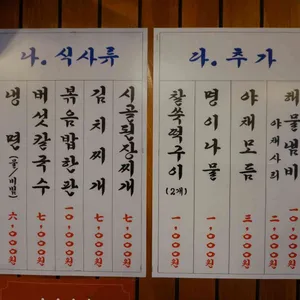 나. 식사류
냉면(물/비빔) 六,000원
버섯칼국수 七,000원
볶음밥한판 一0,000원
김치찌개 七,000원
시골된장찌개 七,000원
다. 추가
찰쑥떡구이(2개) 一,000원
명이나물 一,000원
야채모듬 三,000원
야채사리 二,000원
해물냄비 一0,000원